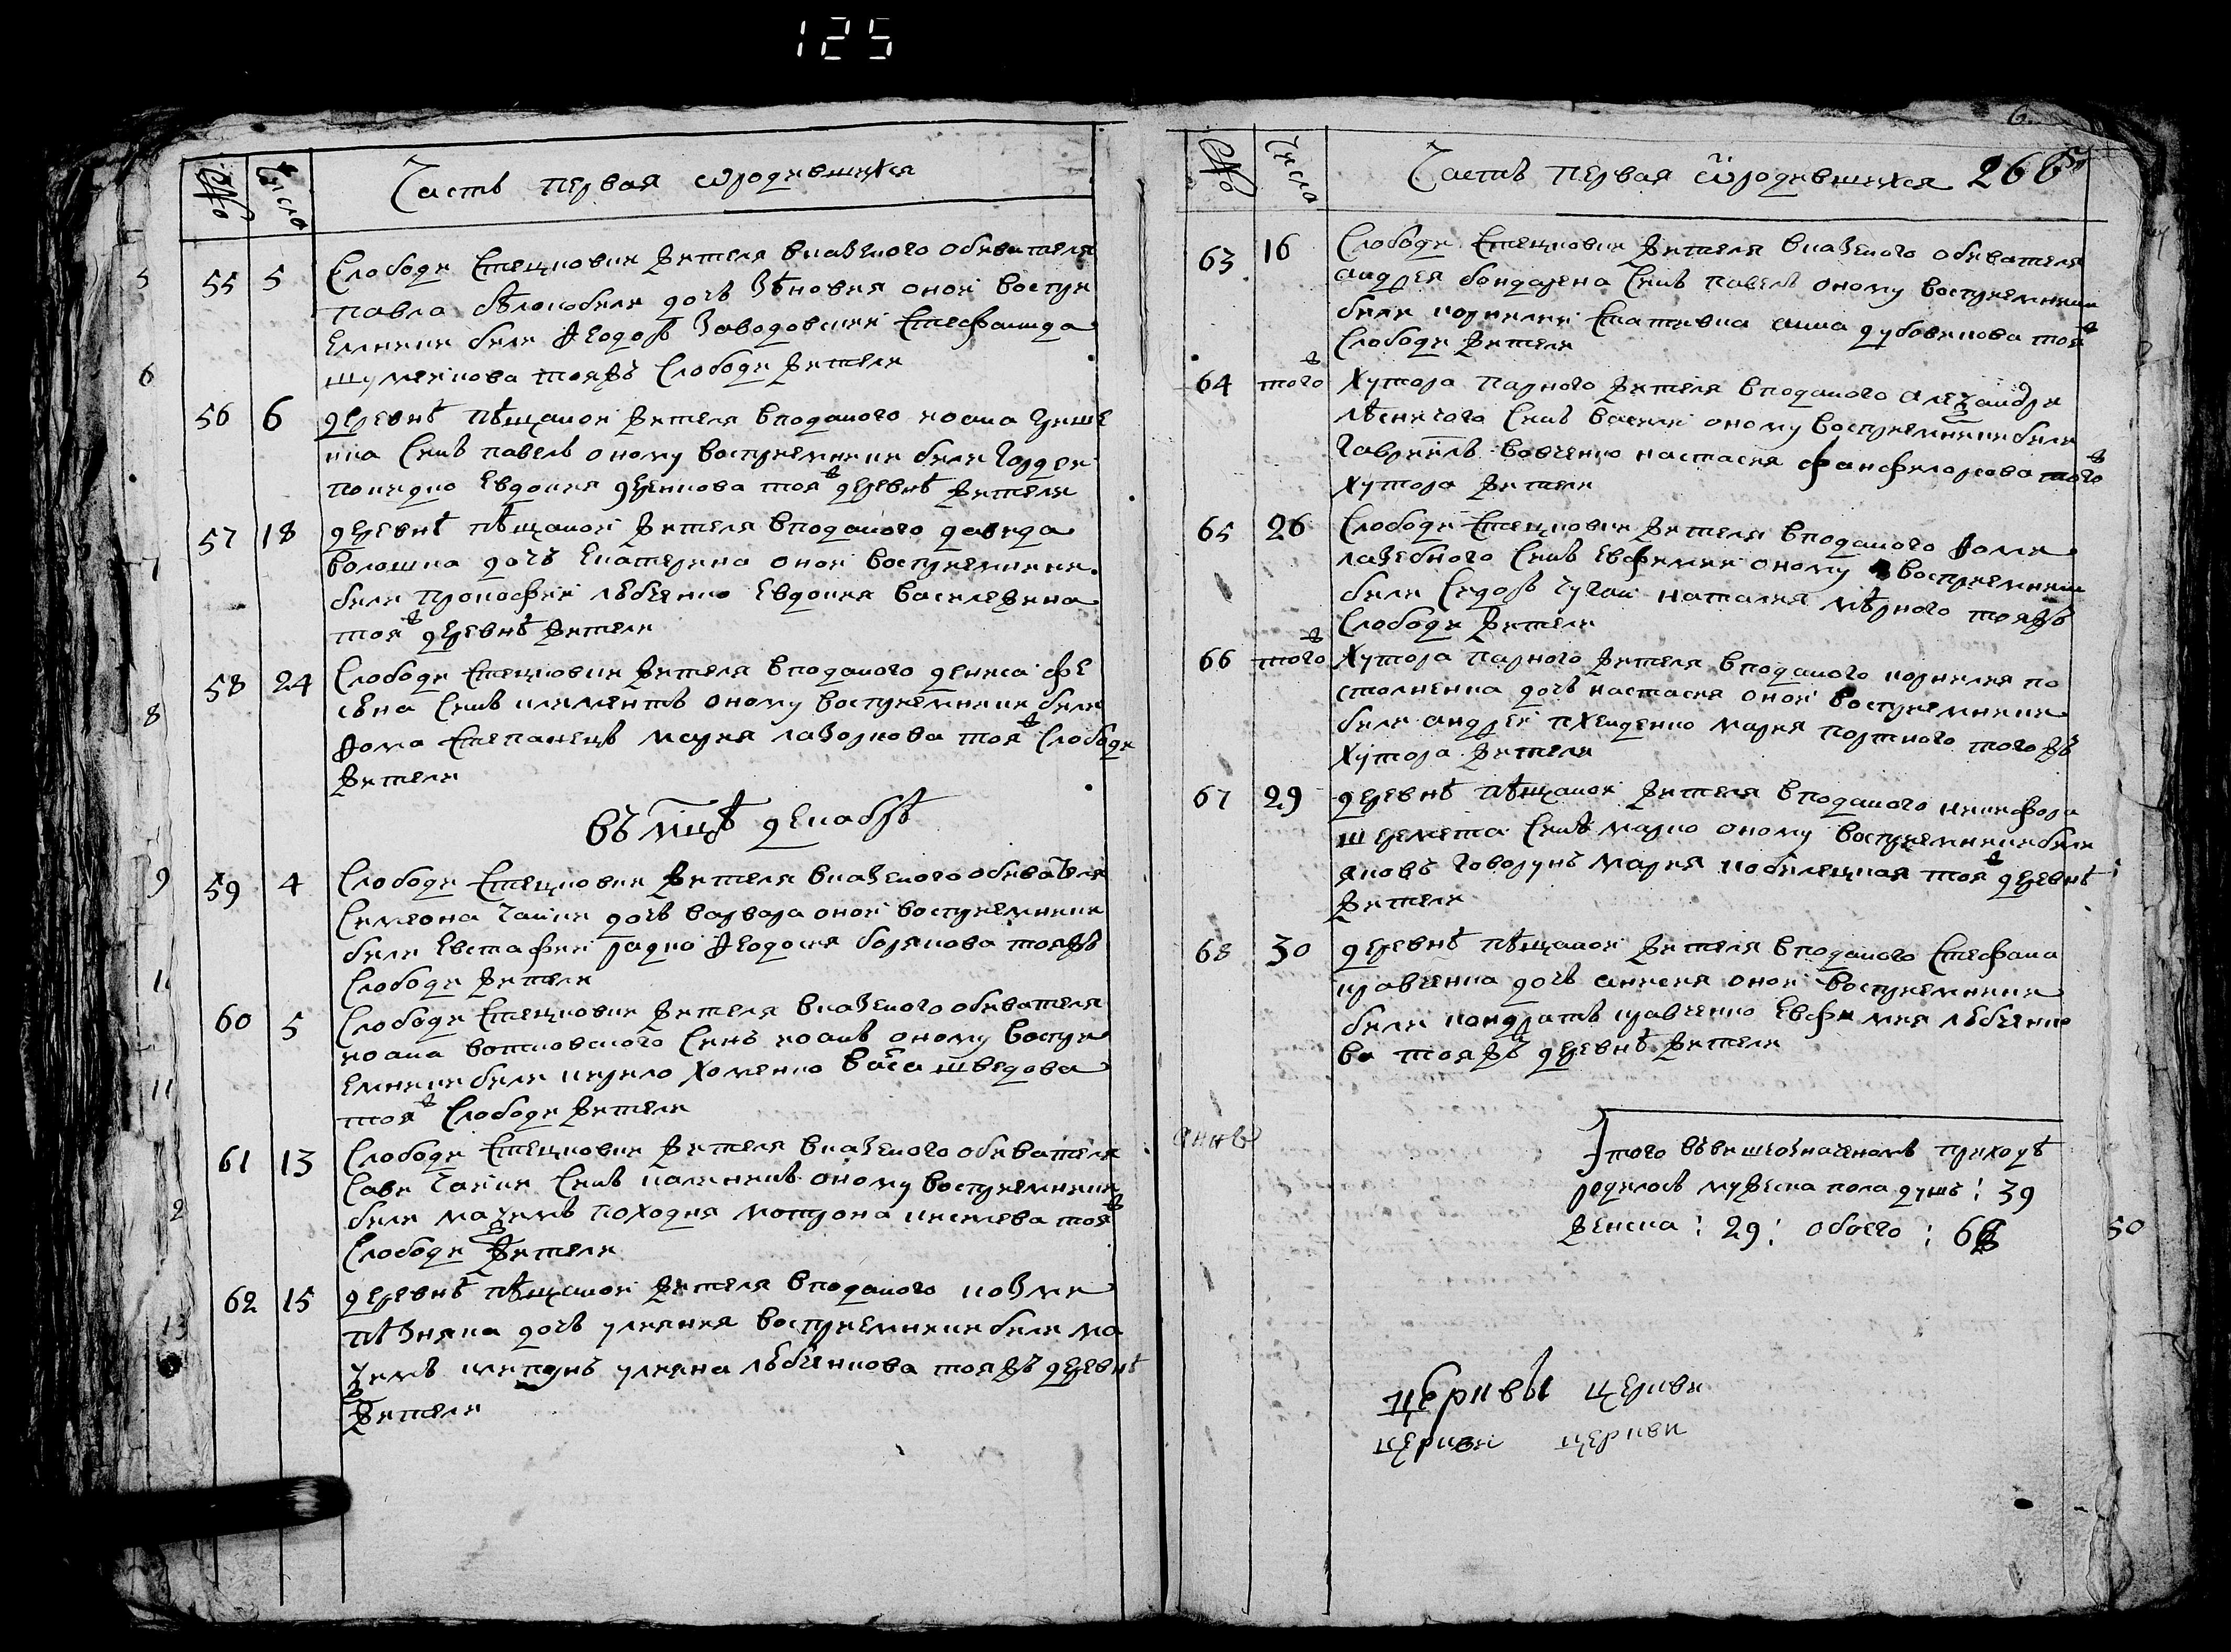 125
№ Числа Часть первая ѡ родившихся
55 5 Слободи Стецковки жителя вказеного обивателя
павла бѣлокобили дочь Зѣновия оной воспри
Емники били Ѳеодоръ Заводовский Стефанида
шумейкова тояжъ Слободи жители
56 6 деревнѣ пѣщаной жителя вподаного иоана грише
нка Синъ павелъ оному восприемники били Гордей
Евдокия тояж деревнѣ жители
57 18 деревнѣ пѣщаной жителя вподаного давида
волошка дочъ Екатерина оной восприемники
били прокофий лѣбченко Евдокия
тояж деревнѣ жители
58 24 Слободи Стецковки жителя вподаного дениса фе
Синъ климентъ оному восприемники били
Ѳома Степанецъ мария тояж Слободи
жители
въ мцѣ декабрѣ
59 4 Слободи Стецковки жителя вказеного обивателя
Симеона Чайки дочъ варвара оной восприемники
били Евстафий радко Ѳеодосия борякова тояжъ
Слободи жители
60 5 Слободи Стецковки жителя вказеного обивателя
иоана вотковского Синъ иоанъ оному воспри
Емники били кирило Хоменко васа шведова
тояж Слободи жители
61 13 Слободи Стецковки жителя вказеного обивателя
Сави Чайки Синъ калиникъ оному восприемники
били маѯимъ походня мотрона киселева тояж
Слободи жители
62 15 деревнѣ пѣщаной жителя вподаного козми
пѣзняка дочъ улияния восприемники били ма
ѯимъ улияна лѣбченкова тояжъ деревнѣ
жители
№ Числа Часть первая ѡ родившихся 266
63 16 Слободи Стецковки жителя вказеного обивателя
андрея бондарена Синъ павелъ оному восприемники
били корнилий Стативка анна дубовикова тояж
Слободи жители
64 тогож Хутора парного жителя вподаного алеѯандри
лѣсничого Синъ василий оному восприемники били
Гавриилъ вовченко настасия тогож
Хутора жители
65 26 Слободи Стецковки жителя вподаного Ѳоми
лазебного Синъ Евфимий оному восприемники
били Сидоръ Чугай наталия мѣрного тояжъ
Слободи жители
66 тогож Хутора парного жителя вподаного корнилия по
столненка дочъ настасия оной восприемники
били андрей мария портного тогожъ
Хутора жители
67 29 деревнѣ пѣщаной жителя вподаного никифора
шеремета Синъ марко оному восприемники били
яковъ Говорунъ мария кобилецкая тояж деревнѣ
жители
68 30 деревнѣ пѣщаной жителя вподаного Стефана
кравченка дочъ анисия оной восприемники
били кондратъ кравченко Евфимия лѣбченко
ва тояжъ деревнѣ жители
Итого въвишеозначеномъ приходѣ
родилось мужеска пола душъ : 39
женска : 29 : обоего : 68
50
церквы церкви
церкви церкви